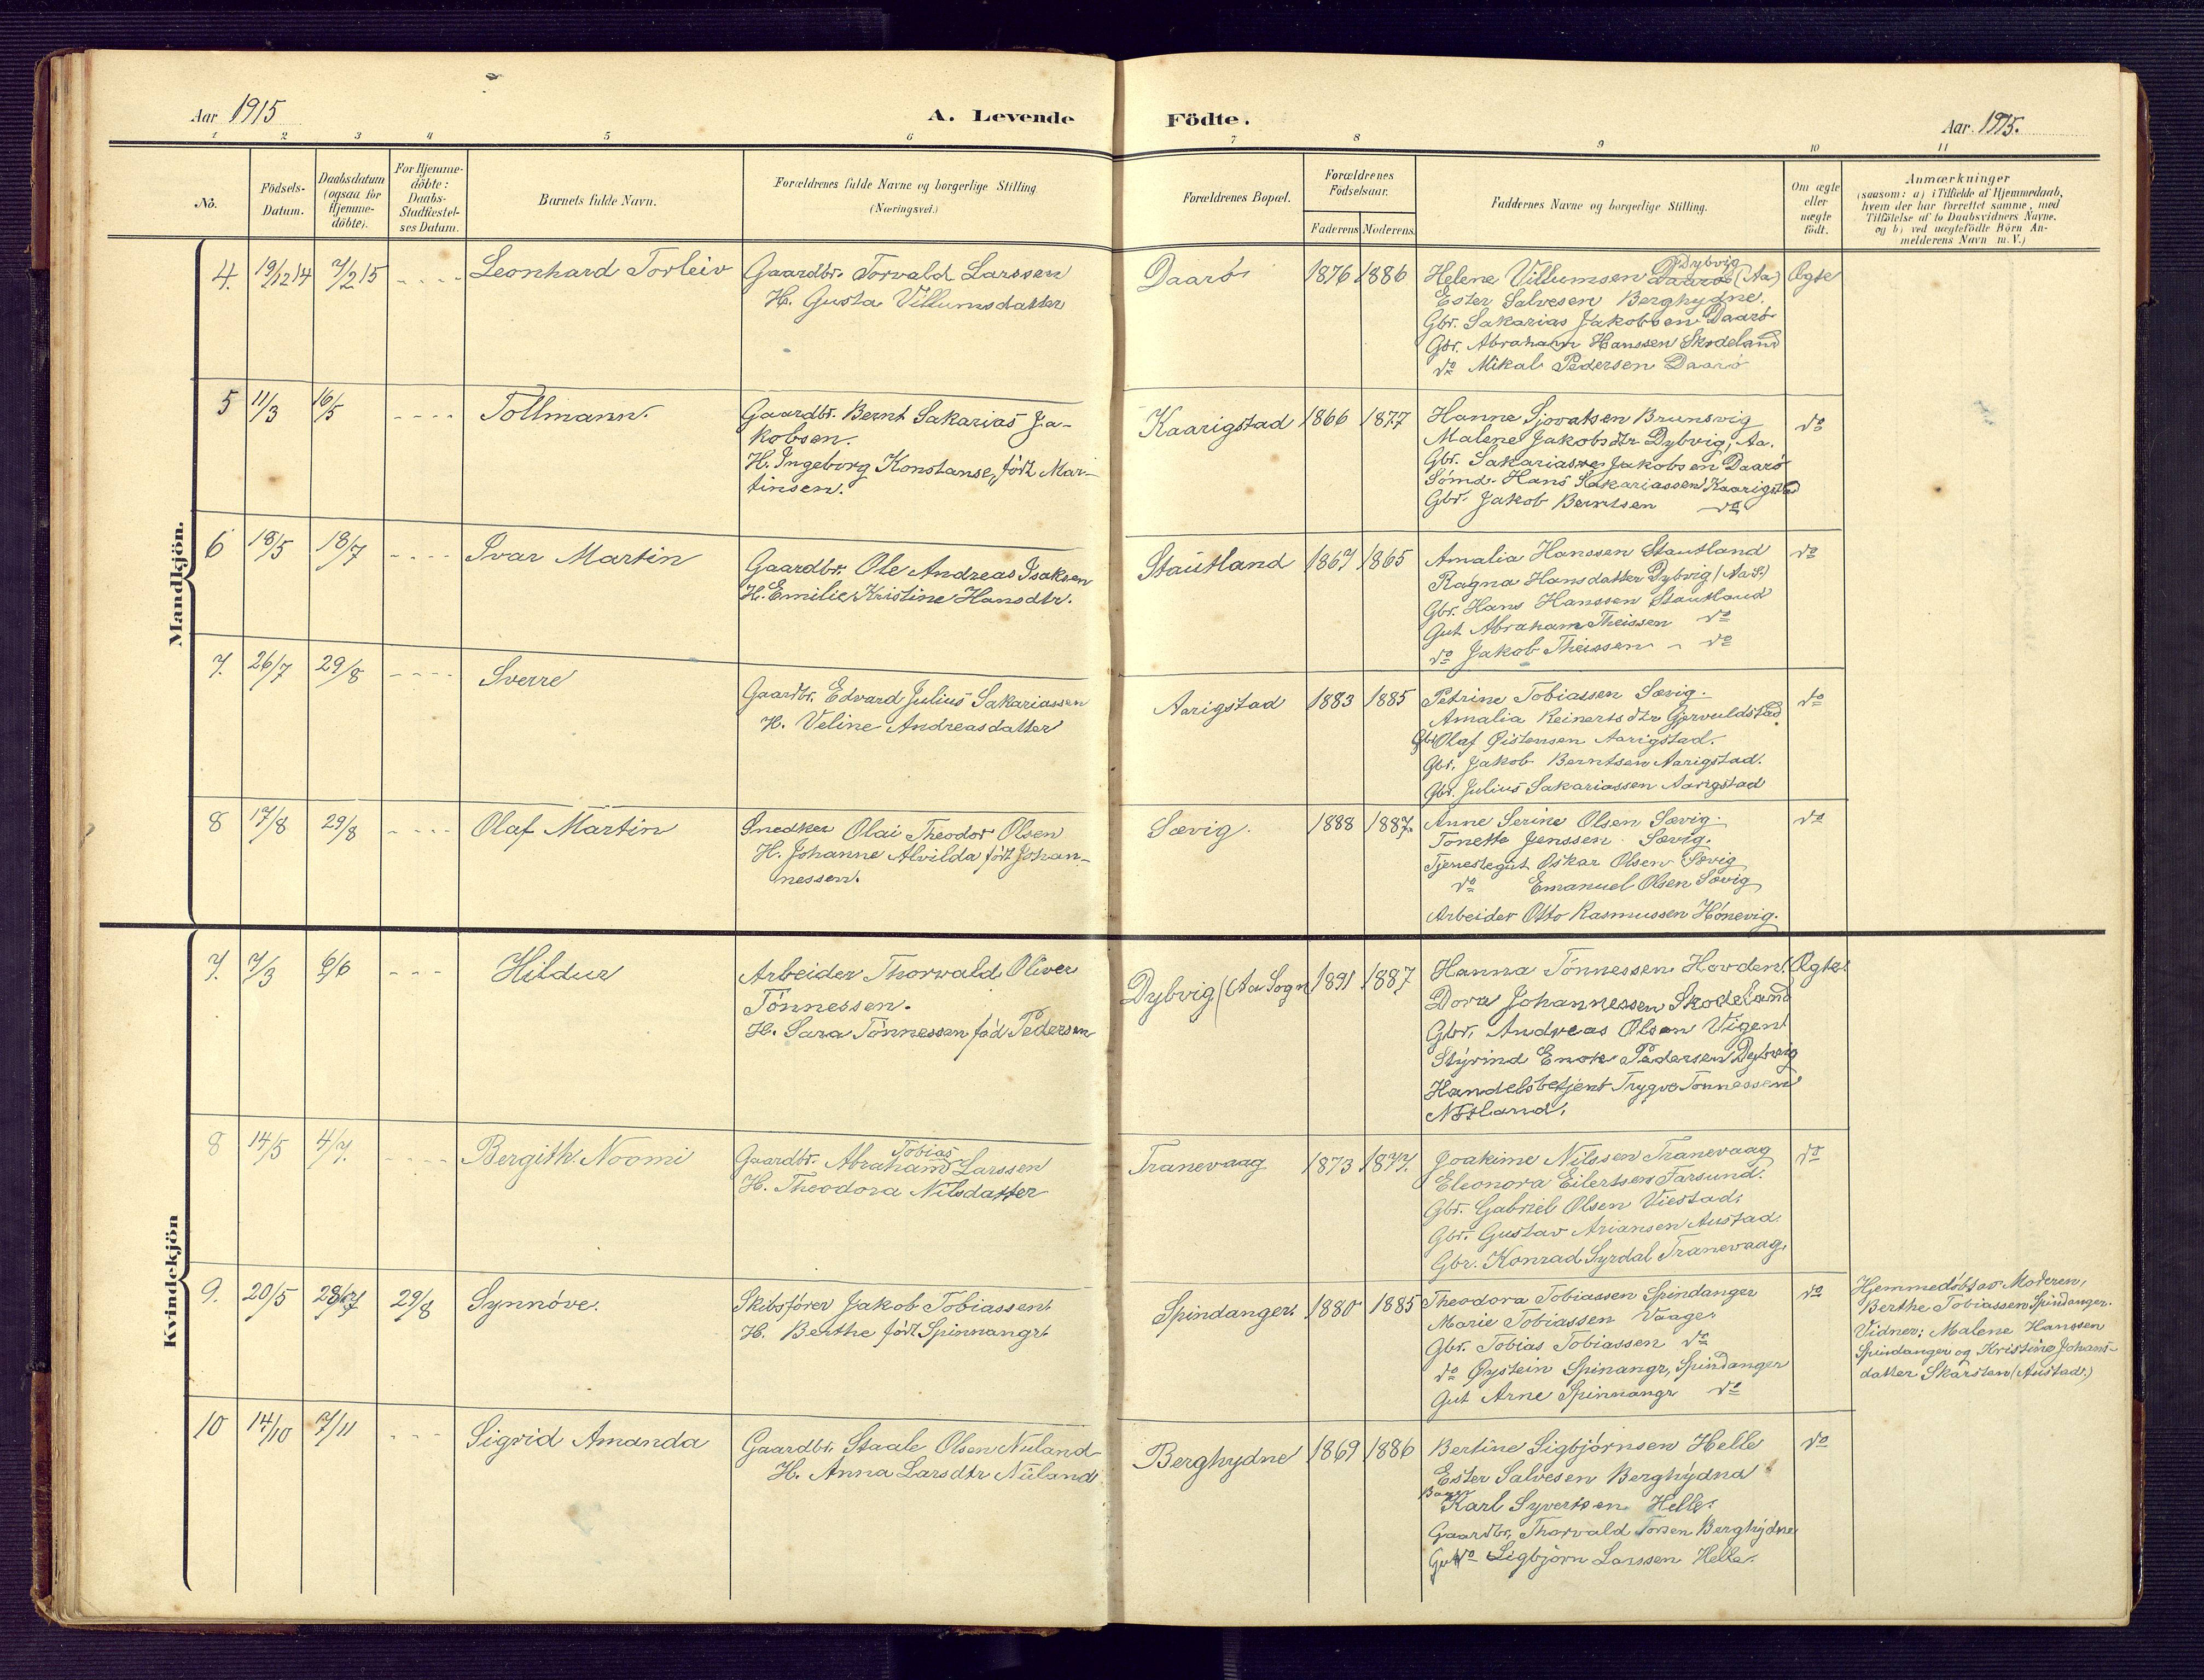 Aar 1915
A. Levende Födte.
Aar 1915.
1 2 3 4 5 6 7 8 9 10 11
No.
Födsels-
Datum.
Daabsdatum
(ogsaa for
Hjemme-
döbte).
For Hjemme-
döbte:
Daabs-
Stadfæstel-
ses Datum.
Barnets fulde Navn.
Forældrenes fulde Navne og borgerlige Stilling.
(Næringsvei.)
Forældrenes Bopæl.
Forældrenes
Födselsaar.
Faderens Moderens.
Faddernes Navne og borgerlige Stilling.
Om ægte
eller
uægte
födt.
Anmærkninger
(saasom: a) i Tilfælde af Hjemmedaab,
hvem der har forrettet samme, med
Tilföielse af to Daabsvidners Navne.
og b) ved uægtefödte Börn An-
melderens Navn m. V.)
Mandkjön.
4. 19/12 14 7/2 15 - - - - Leonhard Torleiv
Gaardbr. Torvald Larssen
H. Gusta Villumsdatter
Daarö 1876 1886
Dybvig
Helene Villumsen Daarö (Aa)
Ester Salvesen Berghydne.
Gbr. Sakarias Jakobsen Daarö
Gbr. Abraham Hanssen Skodeland
do Mikal Pedersen Daarö
Ægte
5 11/3 16/5 - - - - Tollmann.
Gaardbr. Bernt Sakarias Ja-
kobsen.
H. Ingeborg Konstanse, født Mar-
tinsen.
Kaarigstad 1866 1877
Hanne Sjovatsen Brunsvig
Malene Jakobsdtr Dybvig, Aa.
Gbr. Sakarias Jakobsen Daarö
Sømd. Hans Sakariassen Kaarigstad
Gbr. Jakob Berntsen do
do
6 18/5 18/7 - - - - Ivar Martin
Gaardbr. Ole Andreas Isaksen
H. Emilie Kristine Hansdtr.
Stautland 1867 1865
Amalia Hanssen Stautland
Ragna Hansdatter Dybvig (Aa S.)
Gbr. Hans Hanssen Stautland
Gut Abraham Theissen do
do Jakob Theissen - do
do
7. 26/7 29/8 - - - - Sverre
Gaardbr. Edvard Julius Sakariassen
H. Veline Andreasdatter
Aarigstad 1883 1885
Petrine Tobiassen Sævig.
Amalia Reinertsdtr Gjervuldstad.
Gbr Olaf Øistensen Aarigstad.
Gbr. Jakob Berntsen Aarigstad.
Gbr. Julius Sakariassen Aarigstad
do
8 17/8 29/8 - - - - Olaf Martin
Snedker Olai Theodor Olsen
H. Johanne Alvilda født Johan-
nessen.
Sævig. 1888 1887.
Anne Serine Olsen Sævig.
Tonette Jenssen Sævig.
Tjenestegut Oskar Olsen Sævig
do Emanuel Olsen Sævig
Arbeider Otto Rasmussen Hönevig.
do
Kvindekjön
7. 7/3 6/6 - - - Hildur
Arbeider Thorvald Oliver
Tönnessen.
H. Sara Tönnessen född Pedersen
Dybvig (Aa Sogn 1891 1887
Hanna Tönnessen Hovden.
Dora Johannessen Skodeland
Gbr. Andreas Olsen Vigen
Styrmd Enok Pedersen Dybvig
Handelsbetjent Trygve Tönnessen
Nötland.
Ægte.
8 14/5 4/7. - - - - Bergith Noomi
Tobias
Gaardbr. Abraham Larssen
H. Theodora Nilsdatter
Tranevaag 1873 1877.
Joakime Nilssen Tranevaag
Eleonora Eilertsen Farsund.
Gbr. Gabriel Olsen Viestad.
Gbr. Gustav Ariansen Austad.
Gbr. Konrad Syrdal Tranevaag.
do
9. 20/5 29/8 Synnöve.
Skibsförer Jakob Tobiassen.
H. Berthe födt Spinnangr.
Spindanger. 1880 1885
Theodora Tobiassen Spindanger
Marie Tobiassen Vaage.
Gbr. Tobias Tobiassen do
do Øystein Spinangr, Spindanger
Gut Arne Spinnangr do
do
Hjemmedöbt av Moderen,
Berthe Tobiassen Spindanger.
Vidner: Malene Hanssen
Spindanger og Kristine Johans-
datter Skarsten (Austad.)
10 14/10 7/11 - - - Sigrid Amanda
Gaardbr. Staale Olsen Nuland
H. Anna Larsdtr Nuland.
Berghydne 1869 1886
Bertine Sigbjörnsen Helle
Ester Salvesen Berghydna
Karl Syvertsen Helle.
Gaardbr. Thorvald Torsen Berghydne
do Sigbjörn Larssen Helle.
do